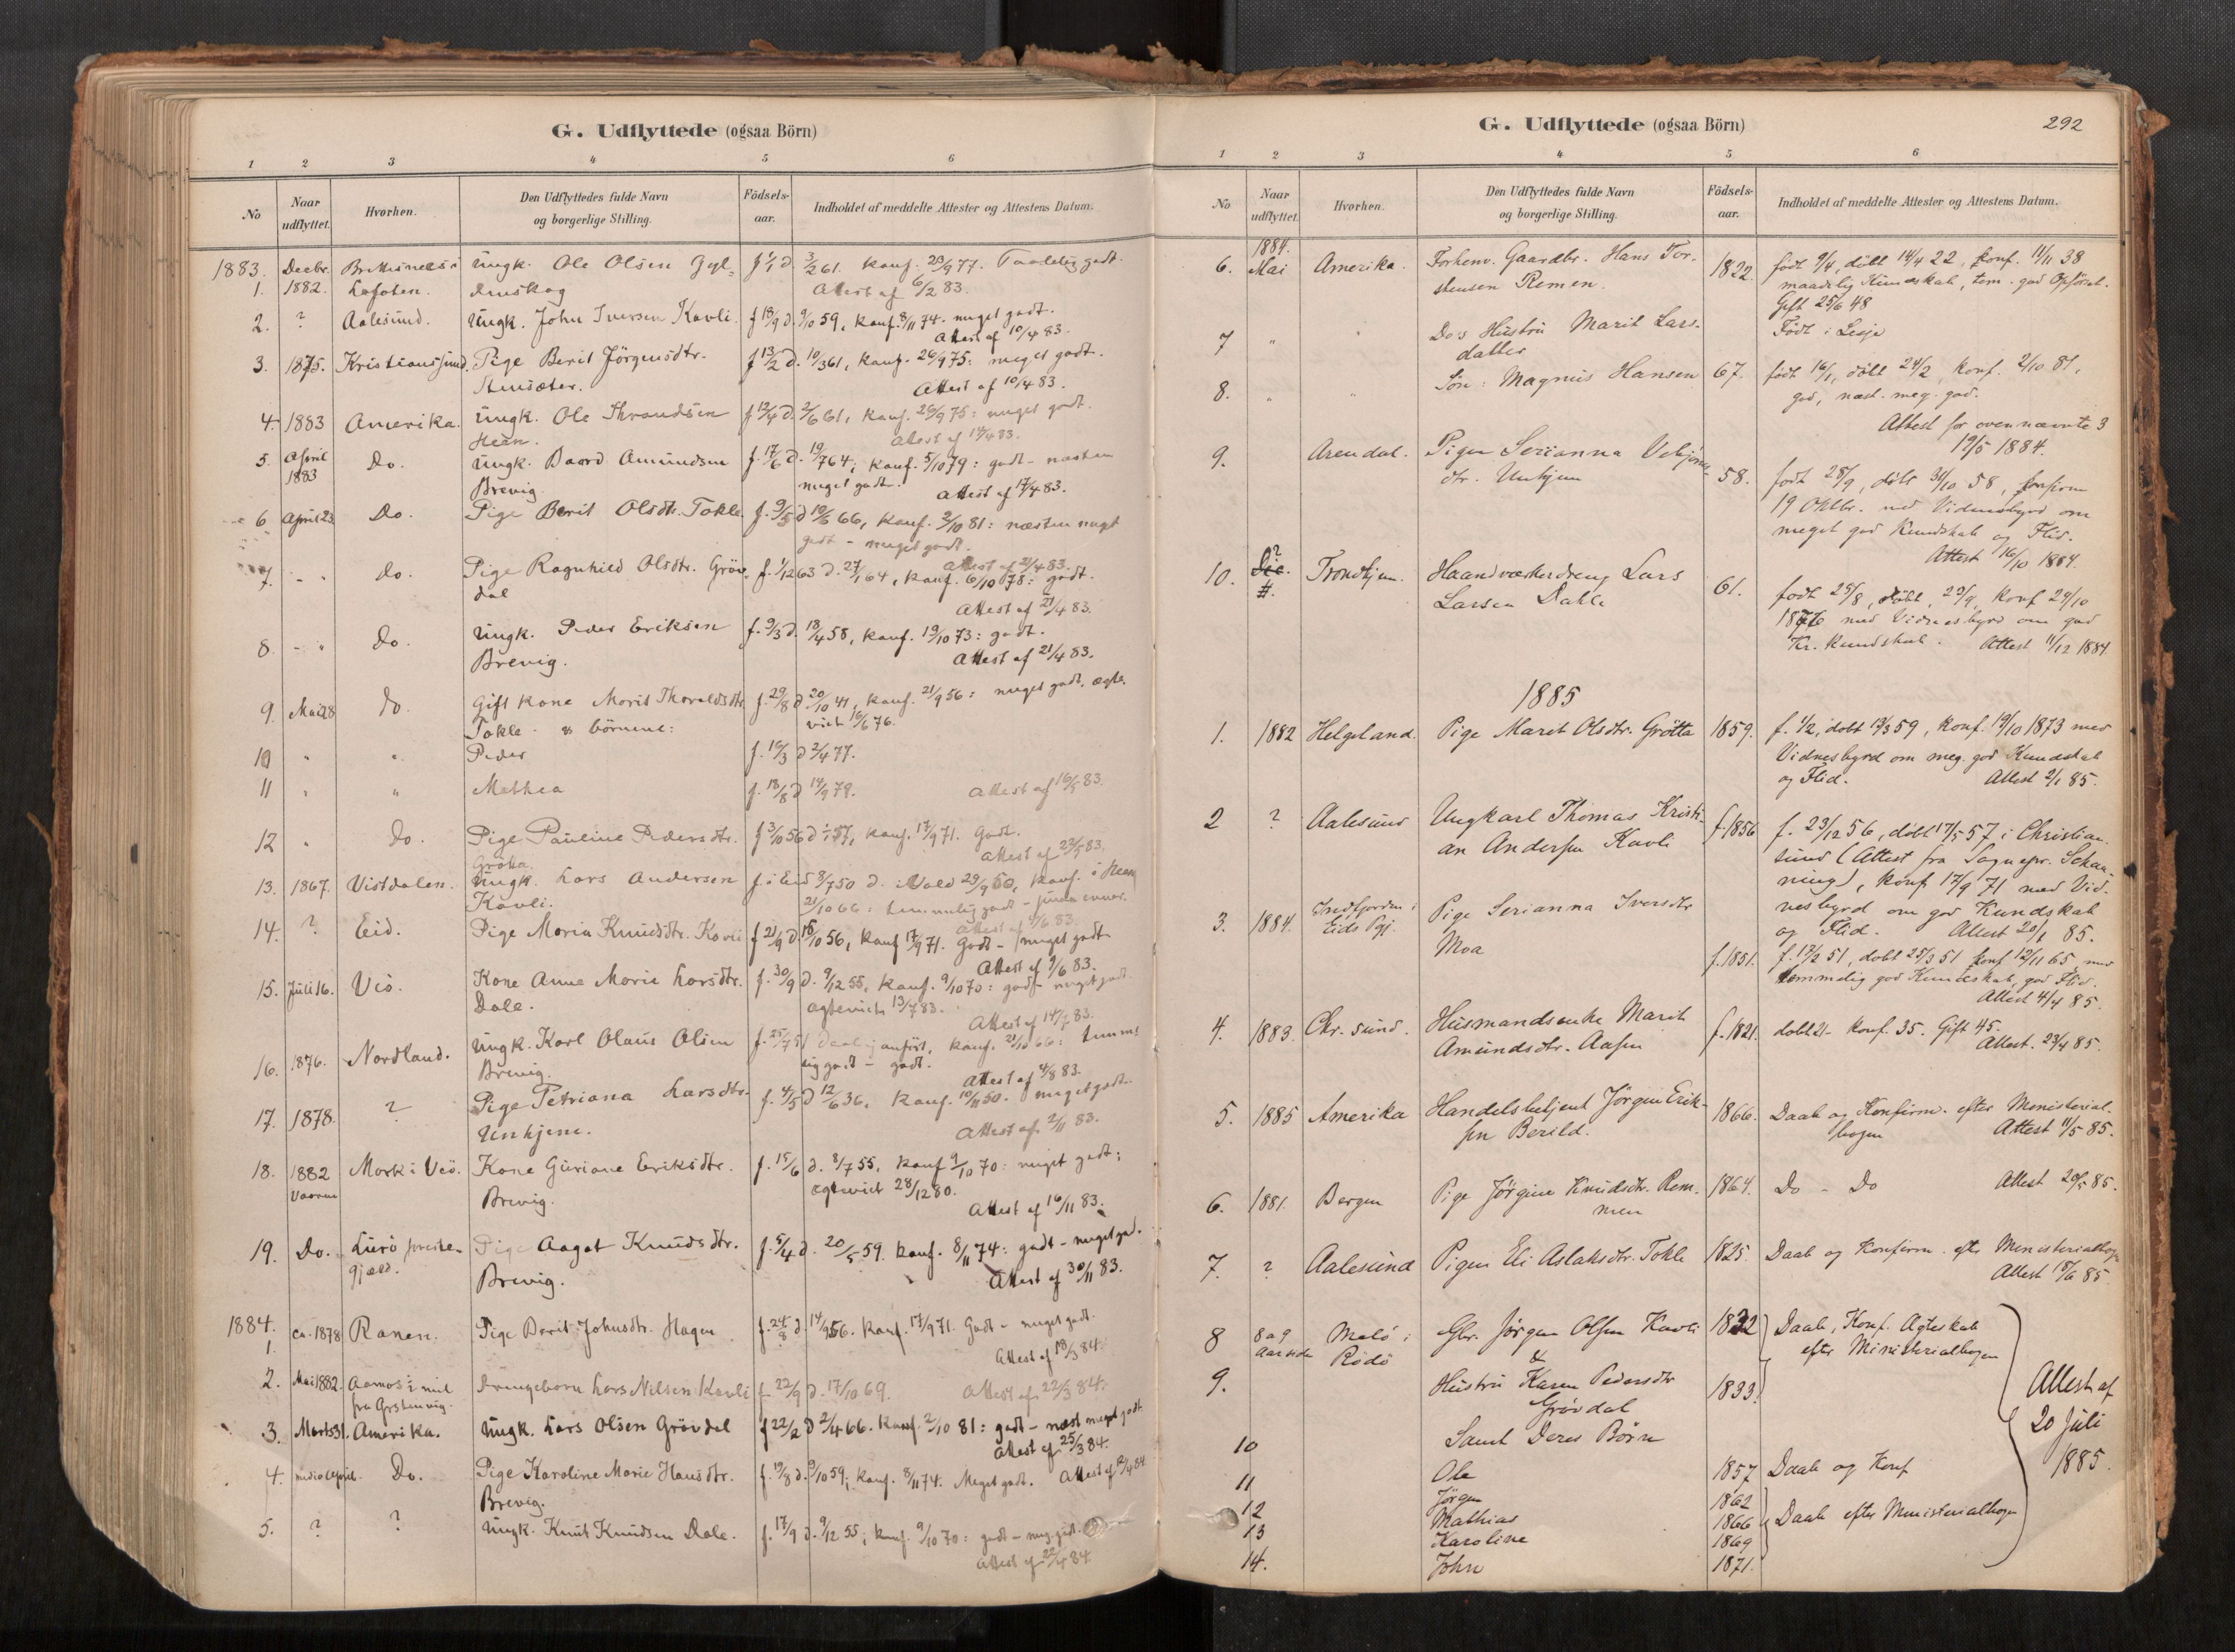 G. Udflyttede (ogsaa Börn)
1 2 3 4 5 6
No Naar udflyttet. Hvorhen. Den Udflyttedes fulde Navn og borgerlige Stilling. Födsels-aar. Indholdet af meddelte Attester og Attestens Datum.
1883. Decbr. Ungk. Ole Olsen Gyl- f 1/1 d. 3/2 61. Konf. 23/9 77. Taalelig godt.
1. 1882. Lofoten. denskog Attest af 6/2 83.
2. ? Aalesund. Ungk. John Iversen Kavli. f 18/9 d. 9/10 59, konf. 8/11 74. meget godt.
Attest af 10/4 83.
3. 1875. Kristianssund. Pige Berit Jörgensdtr. f 13/2 d. 10/3 61, konf. 26/9 75: meget godt.
Stensæter. Attest af 10/4 83.
4. 1883 Amerika. Ungk. Ole Throndsen f 12/4 d. 2/6 61, konf. 26/9 75: meget godt.
Heen. Attest af 14/4 83.
5. April Do. Ungk. Baard Amundsen f. 17/6 d. 19/7 64, konf. 5/10 79: godt - næsten
1883 Brevig meget godt. Attest af 17/4 83.
6 April 23 Do. Pige Berit Olsdtr. Tokle. f. 9/5 d 10/6 66, konf. 2/10 81: næsten meget
godt - meget godt.
Attest af 21/4 83.
7. - " Do. Pige Ragnhild Olsdtr. Gröv- f. 1/12 63 d. 27/1 64, konf. 6/10 78: godt.
dal Attest af 21/4 83.
8. - " Do. Ungk. Peder Eriksen f. 9/3 d. 18/4 58, konf. 19/10 73: godt.
Brevig. Attest af 21/4 83.
9. Mai 28 Do. Gift Kone Marit Thoraldsdtr. f. 29/8 d. 20/10 41, konf. 21/9 56: meget godt, ægte-
Tokle & börnene: viet 16/6 76.
10 " " Peder f. 16/3 d 2/4 77.
11 " " Mathea f. 18/8 d 14/9 79. Attest af 16/5 83.
12 " Do. Pige Pauline Pedersdtr. f 3/10 56 d 1/1 57, konf. 17/9 71. Godt.
Grötta. Attest af 23/5 83.
13. 1867. Vistdalen. Ungk. Lars Andersen f. i Eid 8/7 50 d. i Vold 29/9 50, konf. i Heen
Kavli. 21/10 66: temmelig godt
14. ? Eid. Pige Maria Knudsdtr. Kavli f 21/9 d. 18/10 56, konf 17/9 71. Godt - meget godt
Attest af 9/6 83.
15. Juli 16. Veö. Kone Anne Marie Larsdtr. f. 30/9 d. 9/12 55, konf. 9/10 70: godt - meget godt.
Dale. ægteviet 13/7 83. Attest af 14/7 83.
16. 1876. Nordland. Ungk. Karl Olaus Olsen f. 25/7 51 Daab ej anfört, konf. 21/10 66: temme-
Brevig. lig godt - godt. Attest af 4/8 83.
17. 1878. ? Pige Petriana Larsdtr. f. 4/5 d 12/6 36, konf. 10/11 50. meget godt.
Unhjem. Attest af 2/11 83.
18. 1882 Mork i Veö. Kone Guriane Eriksdtr. f. 15/6 d. 8/7 55, konf 9/10 70: meget godt;
Vaaren Brevig. ægteviet 28/12 80.
Attest af 16/11 83.
19. Do. Lurö præste- Pige Aagot Knudsdtr. f. 5/4 d. 20/5 59. konf. 8/11 74: godt - meget god.
gjæld. Brevig. Attest af 30/11 83.
1884.
1. ca. 1878 Ranen. Pige Berit Johnsdtr. Hagen f. 24/8 d. 14/9 56. Konf. 17/9 71. Godt - meget godt.
Attest af 18/3 84.
2. Mai 1882. Drengebarn Lars Nilsen Kavli f. 22/9 d. 17/10 69. Attest af 22/3 84.
3. Marts 31. Amerika. Ungk. Lars Olsen Grövdal f 22/2 d 2/4 66. Konf. 2/10 81: godt - næst meget godt.
Attest af 25/3 84.
4. medio April. Do. Pige Karoline Marie Hansdtr. f. 19/8 d. 9/10 59; konf. 8/11 74. Meget godt. Attest af 12/4 84
Brevig.
5. ? ? Ungk. Knut Knudsen Dale. f. 17/9 d. 9/12 55; konf. 9/10 70: godt - meg. godt.
Attest af 22/4 84
G. Udflyttede (ogsaa Börn) 292
1 2 3 4 5 6
No Naar udflyttet. Hvorhen. Den Udflyttedes fulde Navn og borgerlige Stilling. Födsels-aar. Indholdet af meddelte Attester og Attestens Datum.
1884.
6. Mai Amerika. Forhenv. Gaardbr. Hans Tor- 1822. født 9/4, döbt 14/4 22, konf. 11/11 38
stensen Remen. maadelig Kundskab, tem. god Opförsel.
Gift 25/6 48
7 " " Do's Hustru Marit Lars- Födt i Lesje
datter
8. " " Sön: Magnus Hansen 67. født 16/1, döbt 24/2, Konf. 2/10 81,
god, næst. meg. god.
Attest for ovennævnte 3
19/5 1884.
9. Arendal. Pigen Serianna Vebjörns- 58. født 28/9, döbt 31/10 58, konfirm
dtr. Unhjem 19 Oktbr. med Vidnesbyrd om
meget god Kundskab og Flid.
Attest 16/10 1884.
10. ? Trondhjem. Haandværkerdreng Lars 61. født 25/8, döbt 29/9, Konf 24/10
Larsen Dahle 1876 med Vidnesbyrd om god
Kr. Kundskab. Attest 11/12 1884.
1885
1. 1882 Helgeland. Pige Marit Olsdtr. Grötta 1859. f. 1/2, döbt 13/3 59, Konf. 19/10 1873 med
Vidnesbyrd om meg. god Kundskab
og Flid. Attest 2/1 85.
2 ? Aalesund Ungkarl Thomas Kristi- f. 1856 f. 23/12 56, döbt 17/5 57 i Christian-
an Andersen Kavli sund (Attest fra Sognepr. Schan-
ning), konf 17/9 71 med Vid-
nesbyrd om god Kundskab
og Flid. Attest 20/1 85.
3. 1884. Indfjorden i Pige Serianna Iversdtr
Eids Pgj. Moa f. 1851. f. 13/2 51, döbt 25/3 51 konf 12/11 65 med
temmelig god Kundskab, god Flid.
Attest 4/4 85.
4. 1883. Chr. sund. Husmandsenke Marit f. 1821. döbt 21- Konf. 35. Gift 45.
Amundsdtr. Aasen Attest. 23/4 85.
5. 1885 Amerika Handelsbetjent Jörgen Erik- 1866. Daab og Konfirm. efter Ministerial-
sen Berild. bogen Attest 11/5 85.
6. 1881. Bergen Pige Jörgine Knudsdtr. Rem- 1864. Do - Do Attest 20/5 85.
men
7. ? Aalesund Pigen Eli Aslaksdtr. Tokle 1825. Daab og Konfirm. efter Ministerialbogen
Attest 18/6 85.
8 8 a 9 Melö i Gbr. Jörgen Olsen Kavli 1832 Daab, Konf. Ægteskab
Aar siden Rödö & efter Ministerialbogen
9. Hustru Karen Pedersdtr 1833. Attest af
Grövdal 20 Juli
Samt Deres Börn 1885.
10 Ole 1857 Daab og Konf
11 Jörgen 1862
12 Mathias 1866 Daab efter Ministerialbogen
13 Karoline 1869
14. John 1871.